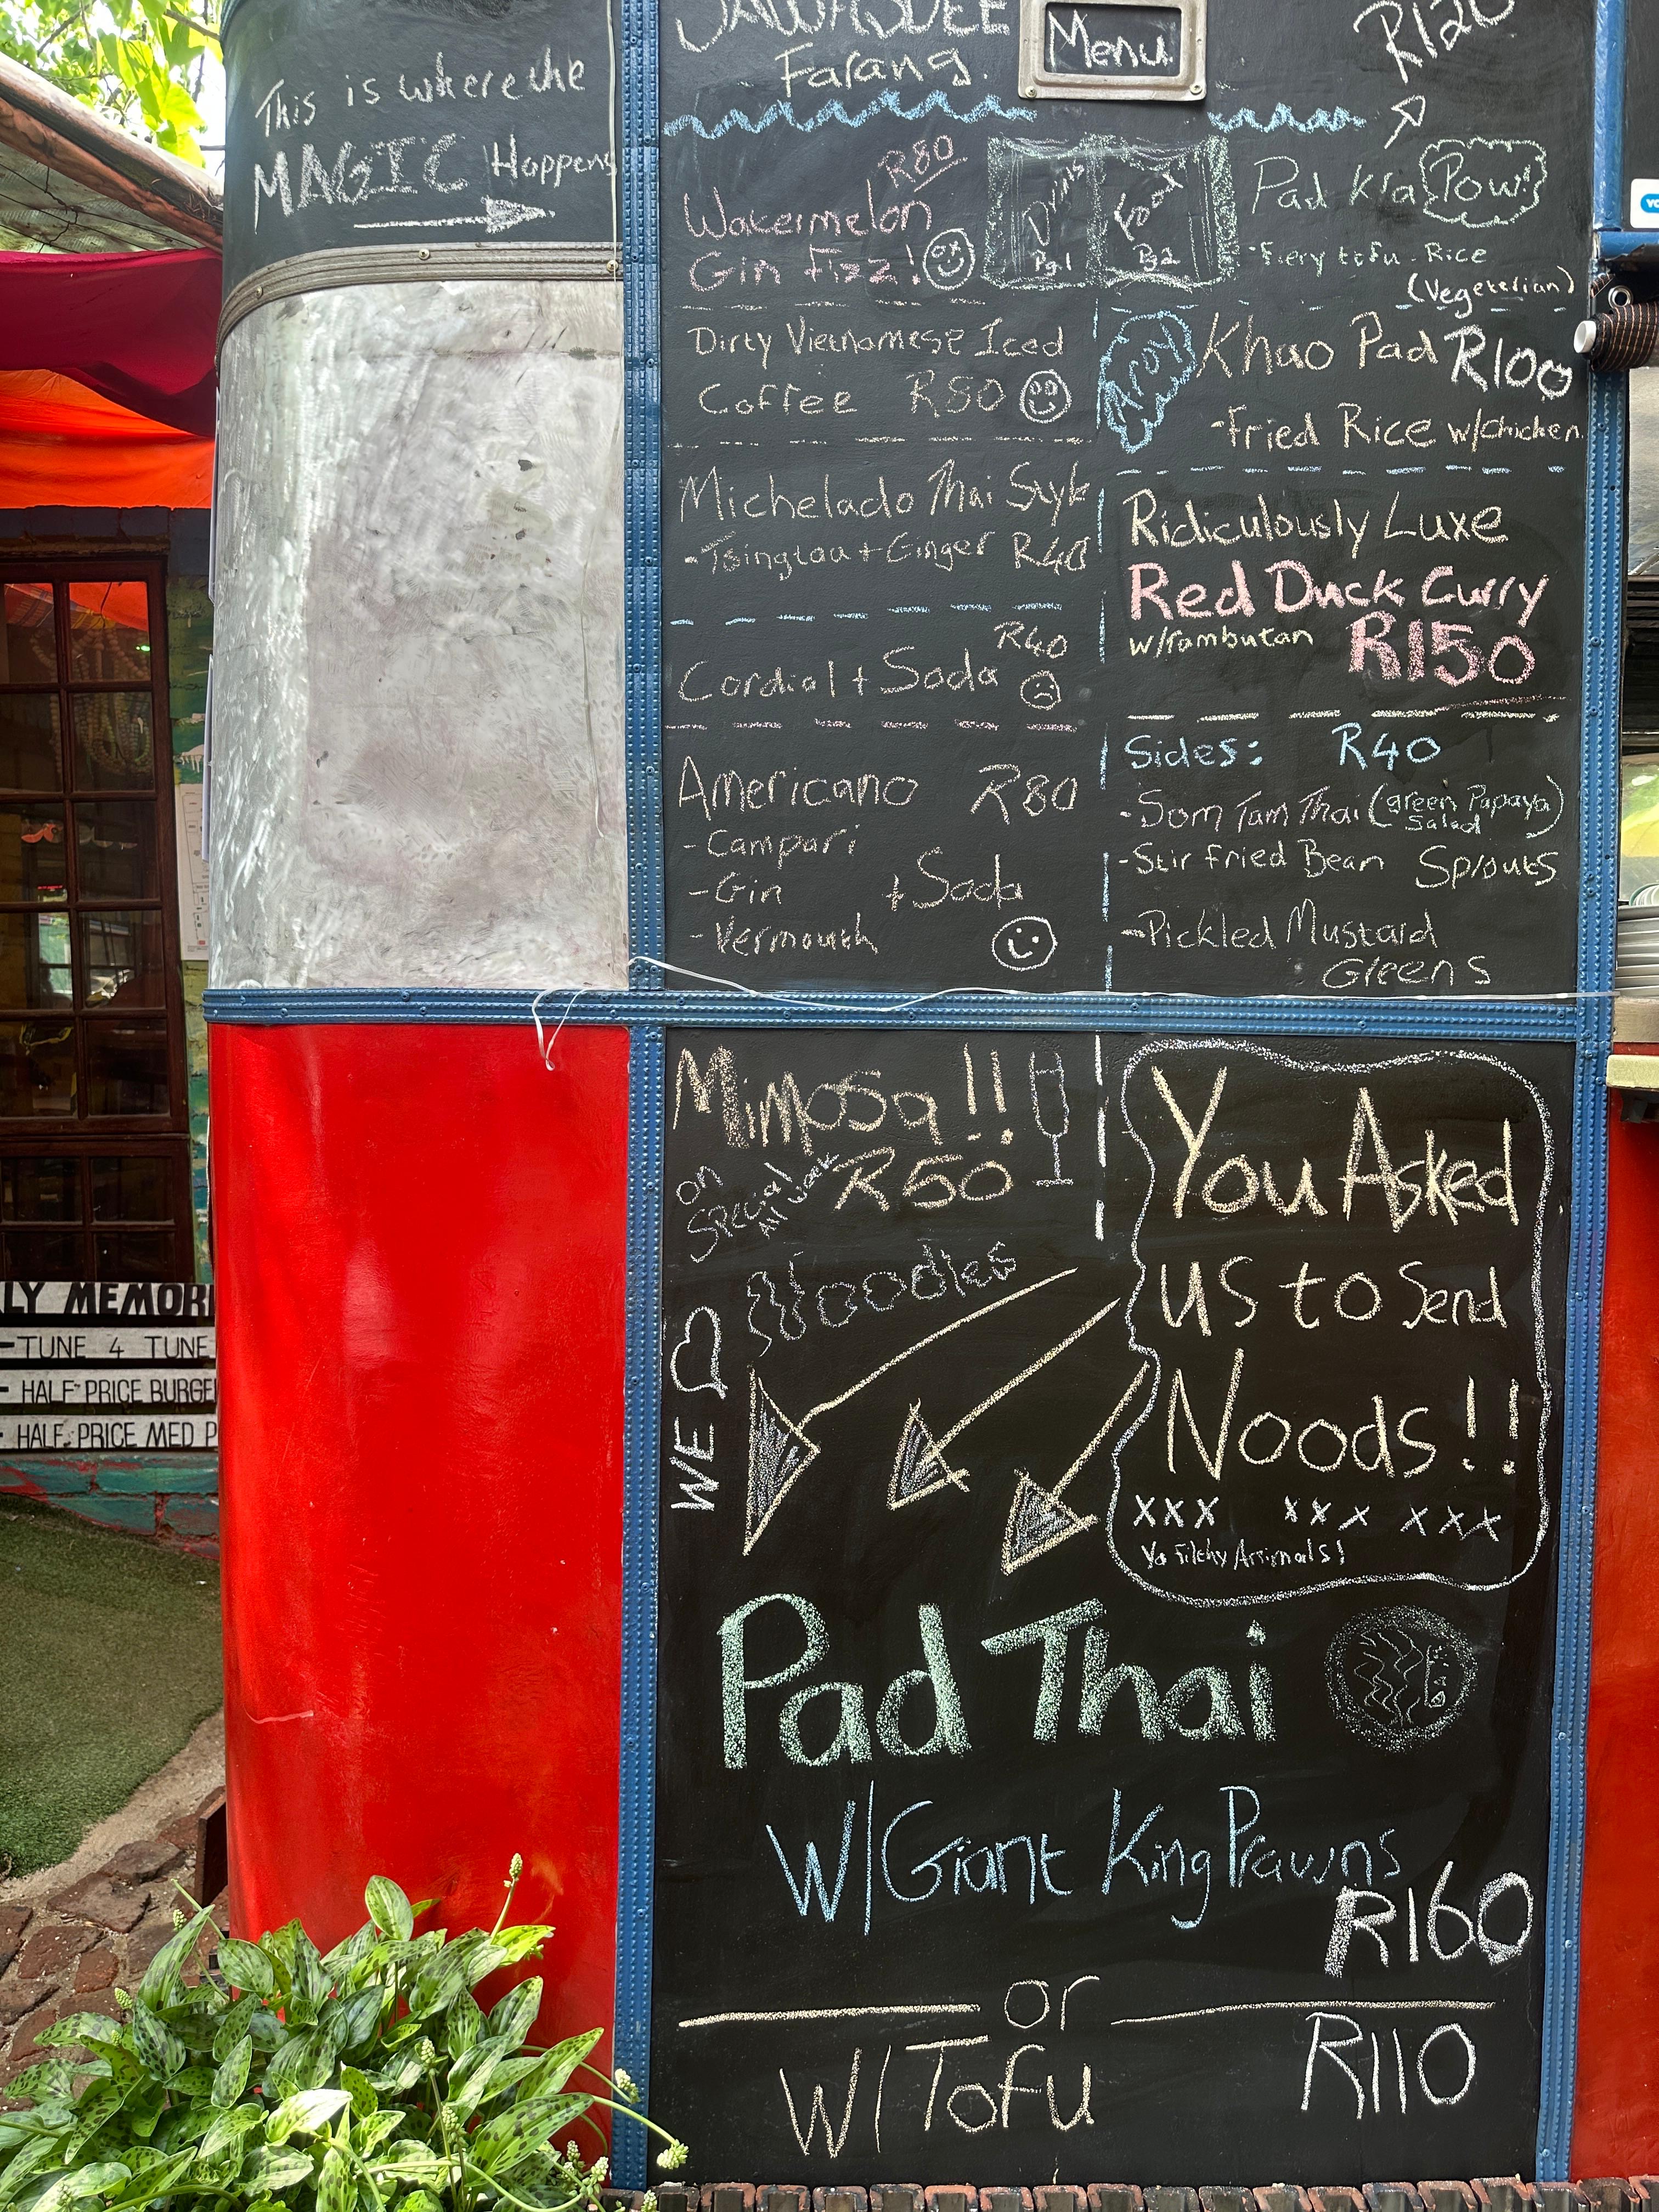 This is where the
MAGIC Happens
Farang.
Menu
R120
R80
Watermelon
Gin Fizz!
Drinks
Pg.1
Food
Pg.2
Pad Kra Pow!
- Fiery tofu - Rice
(Vegeterian)
Dirty Vietnamese Iced
Coffee R80
Aroy!
Khao Pad R100
- Fried Rice w/chicken
Michelado Thai Style
- Tsingtau + Ginger R40
Ridiculously Luxe
Red Duck Curry
w/rambutan R150
R40
Cordial + Soda
Americano R80
- Campari
- Gin + Soda
- Vermouth
Sides: R40
- Som Tam Thai (green Papaya Salad)
- Stir fried Bean Sprouts
- Pickled Mustard
Greens
Mimosa!!
on Special All Week
R50
WE
Noodles
You Asked
us to Send
Noods!!
xxx xxx xxx
Ya Filthy Animals!
Pad Thai
W/Giant King Prawns
R160
or
W/Tofu R110
LY MEMORI
- TUNE 4 TUNE
- HALF-PRICE BURGE
- HALF-PRICE MED P